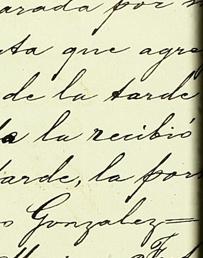 arada por
ta que agre
de la tarde
a la recibió
tarde, la por
o Gonzalez=